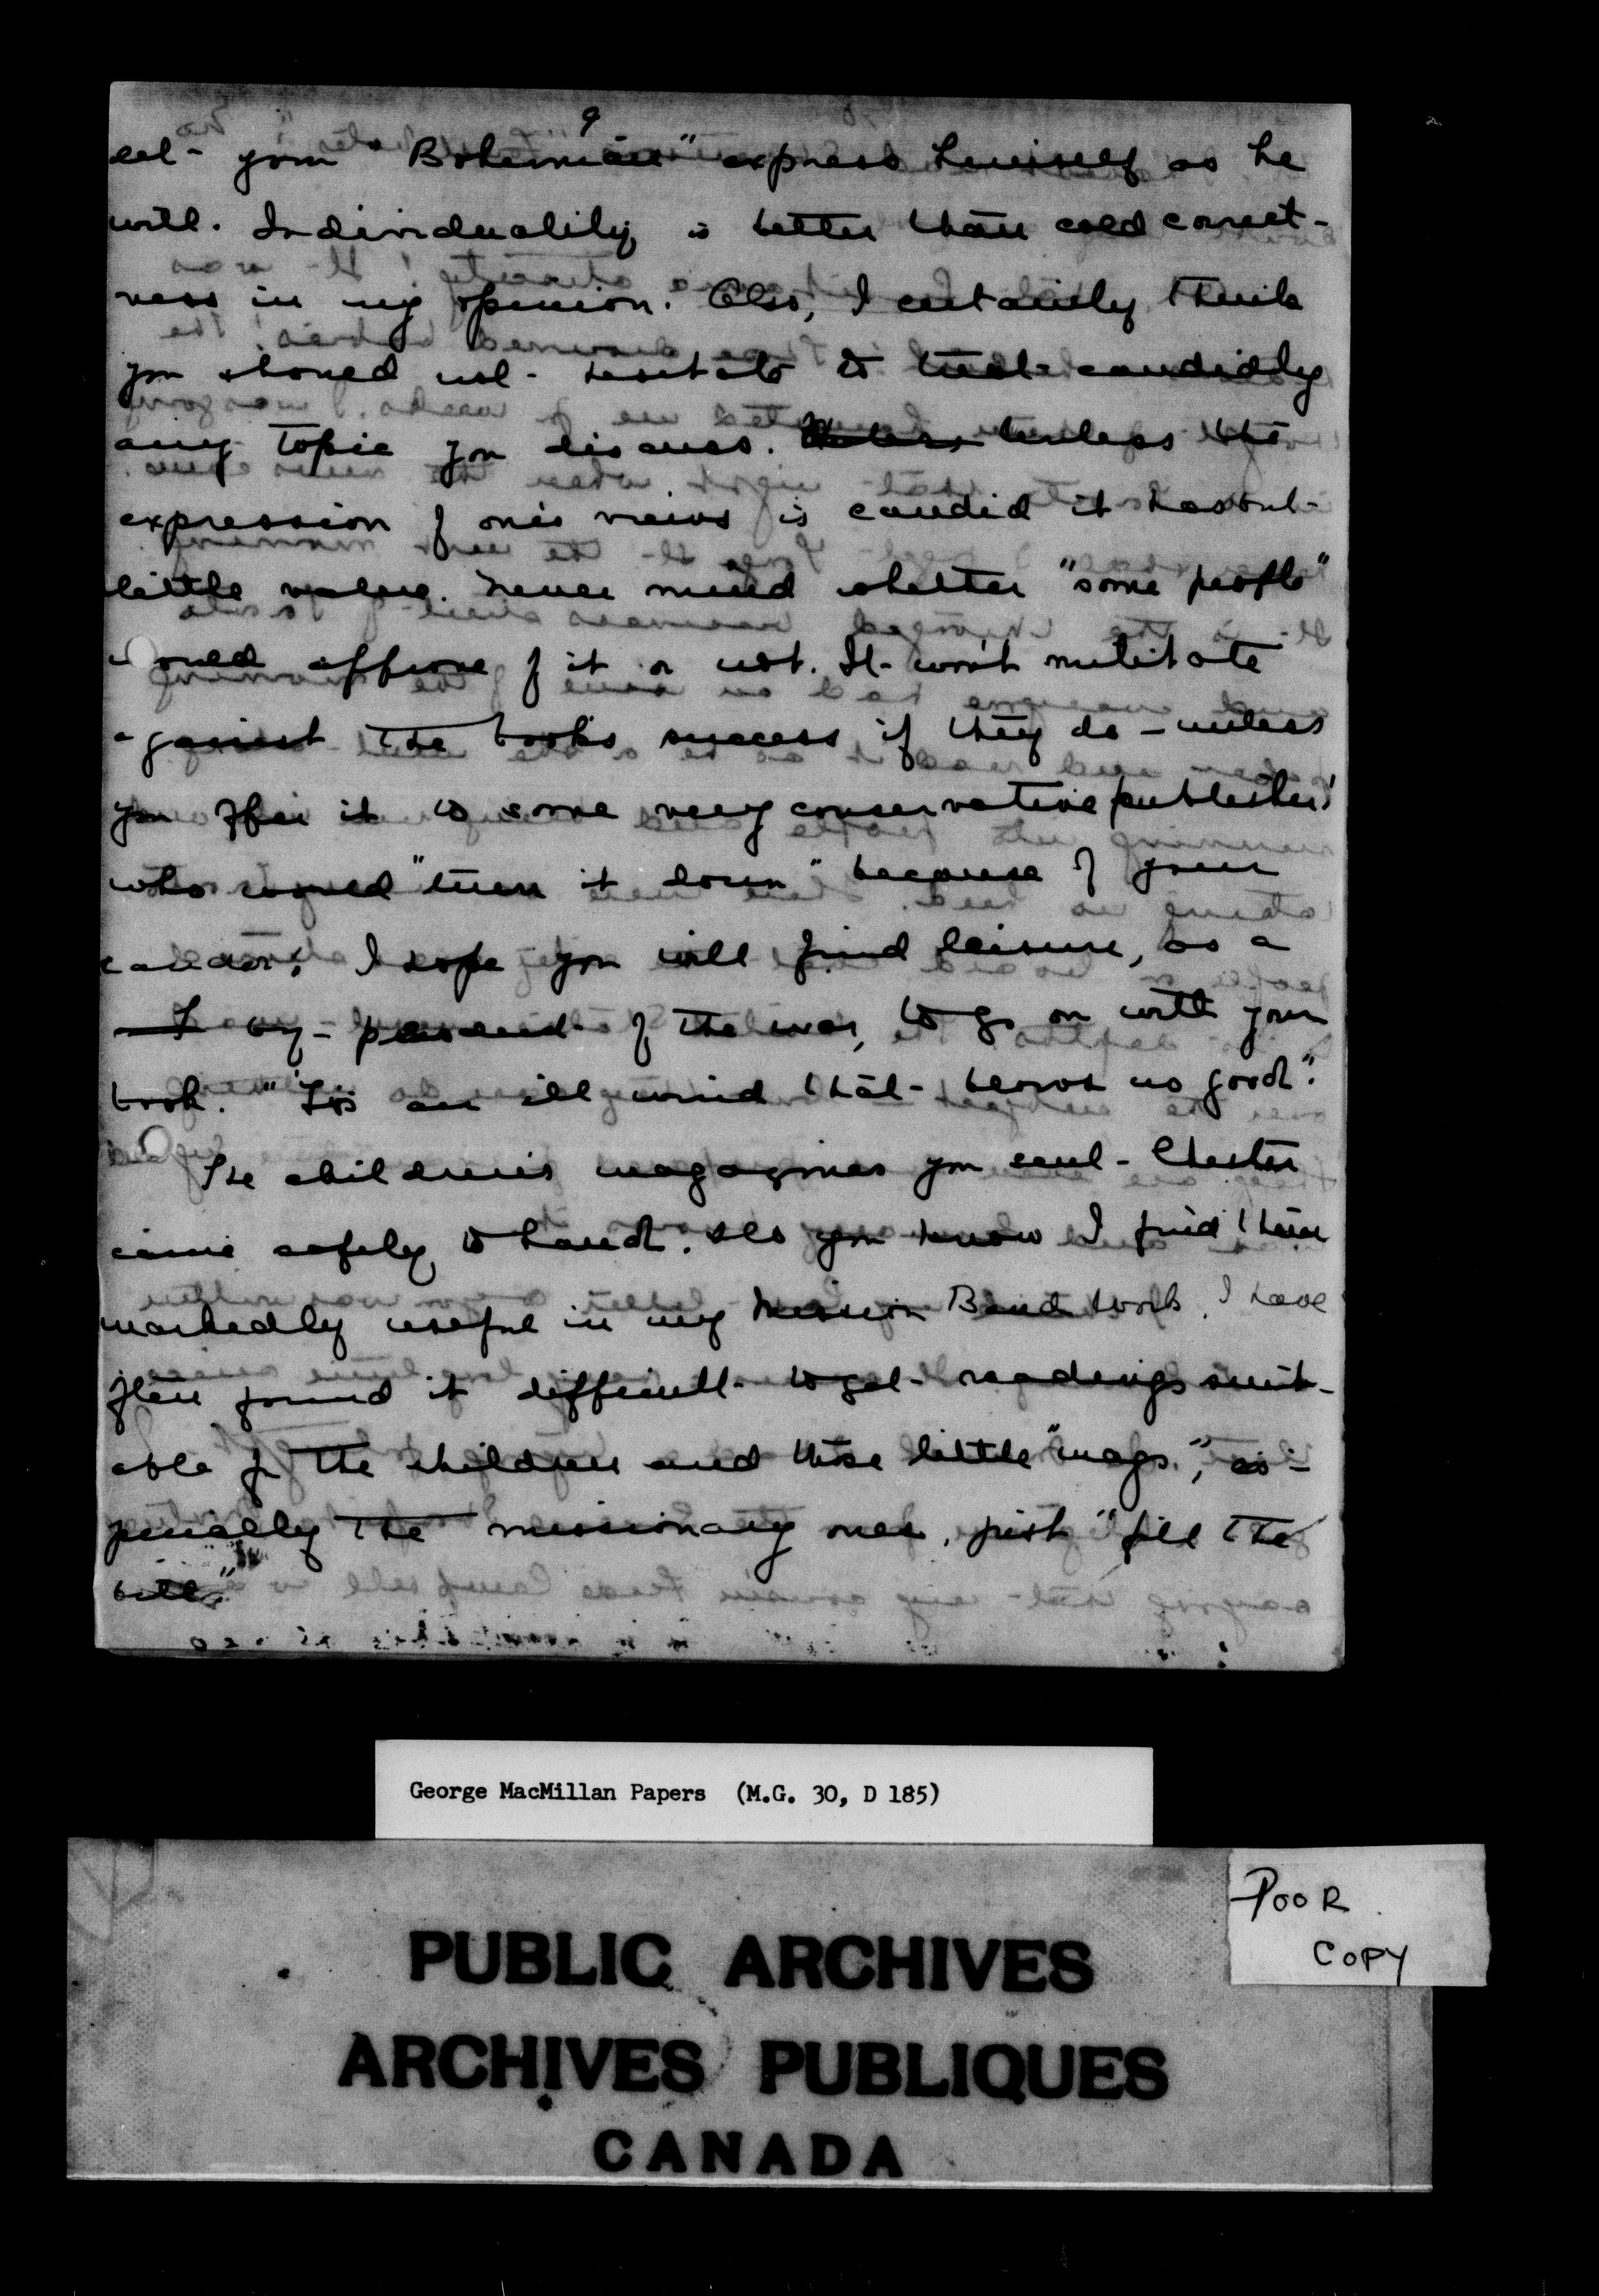 9
let your "Bohemian" express himself as he
will. Individuality is better than cold correct-
ness in my opinion. Also, I certainly think
you should not hesitate to treat candidly
any topic you discuss. Unless the
expression of one's views is candid it has but
little value. Never mind whether "some people"
would approve of it or not. It won't militate
against the book's success if they do – unless
you offer it to some very conservative publisher
who would "turn it down" because of your
candor. I hope you will find leisure, as a
by-product of the war, to go on with your
book. "'Tis an ill wind that blows no good".
The children's magazines you sent Chester
came safely to hand. As you know I find them
markedly useful in my Mission Band work. I have
often found it difficult to get readings suit-
able for the children and those little "mags", es-
pecially the missionary ones, just "fill the
bill."
George MacMillan Papers (M.G. 30, D 185)
POOR
COPY
PUBLIC ARCHIVES
ARCHIVES PUBLIQUES
CANADA